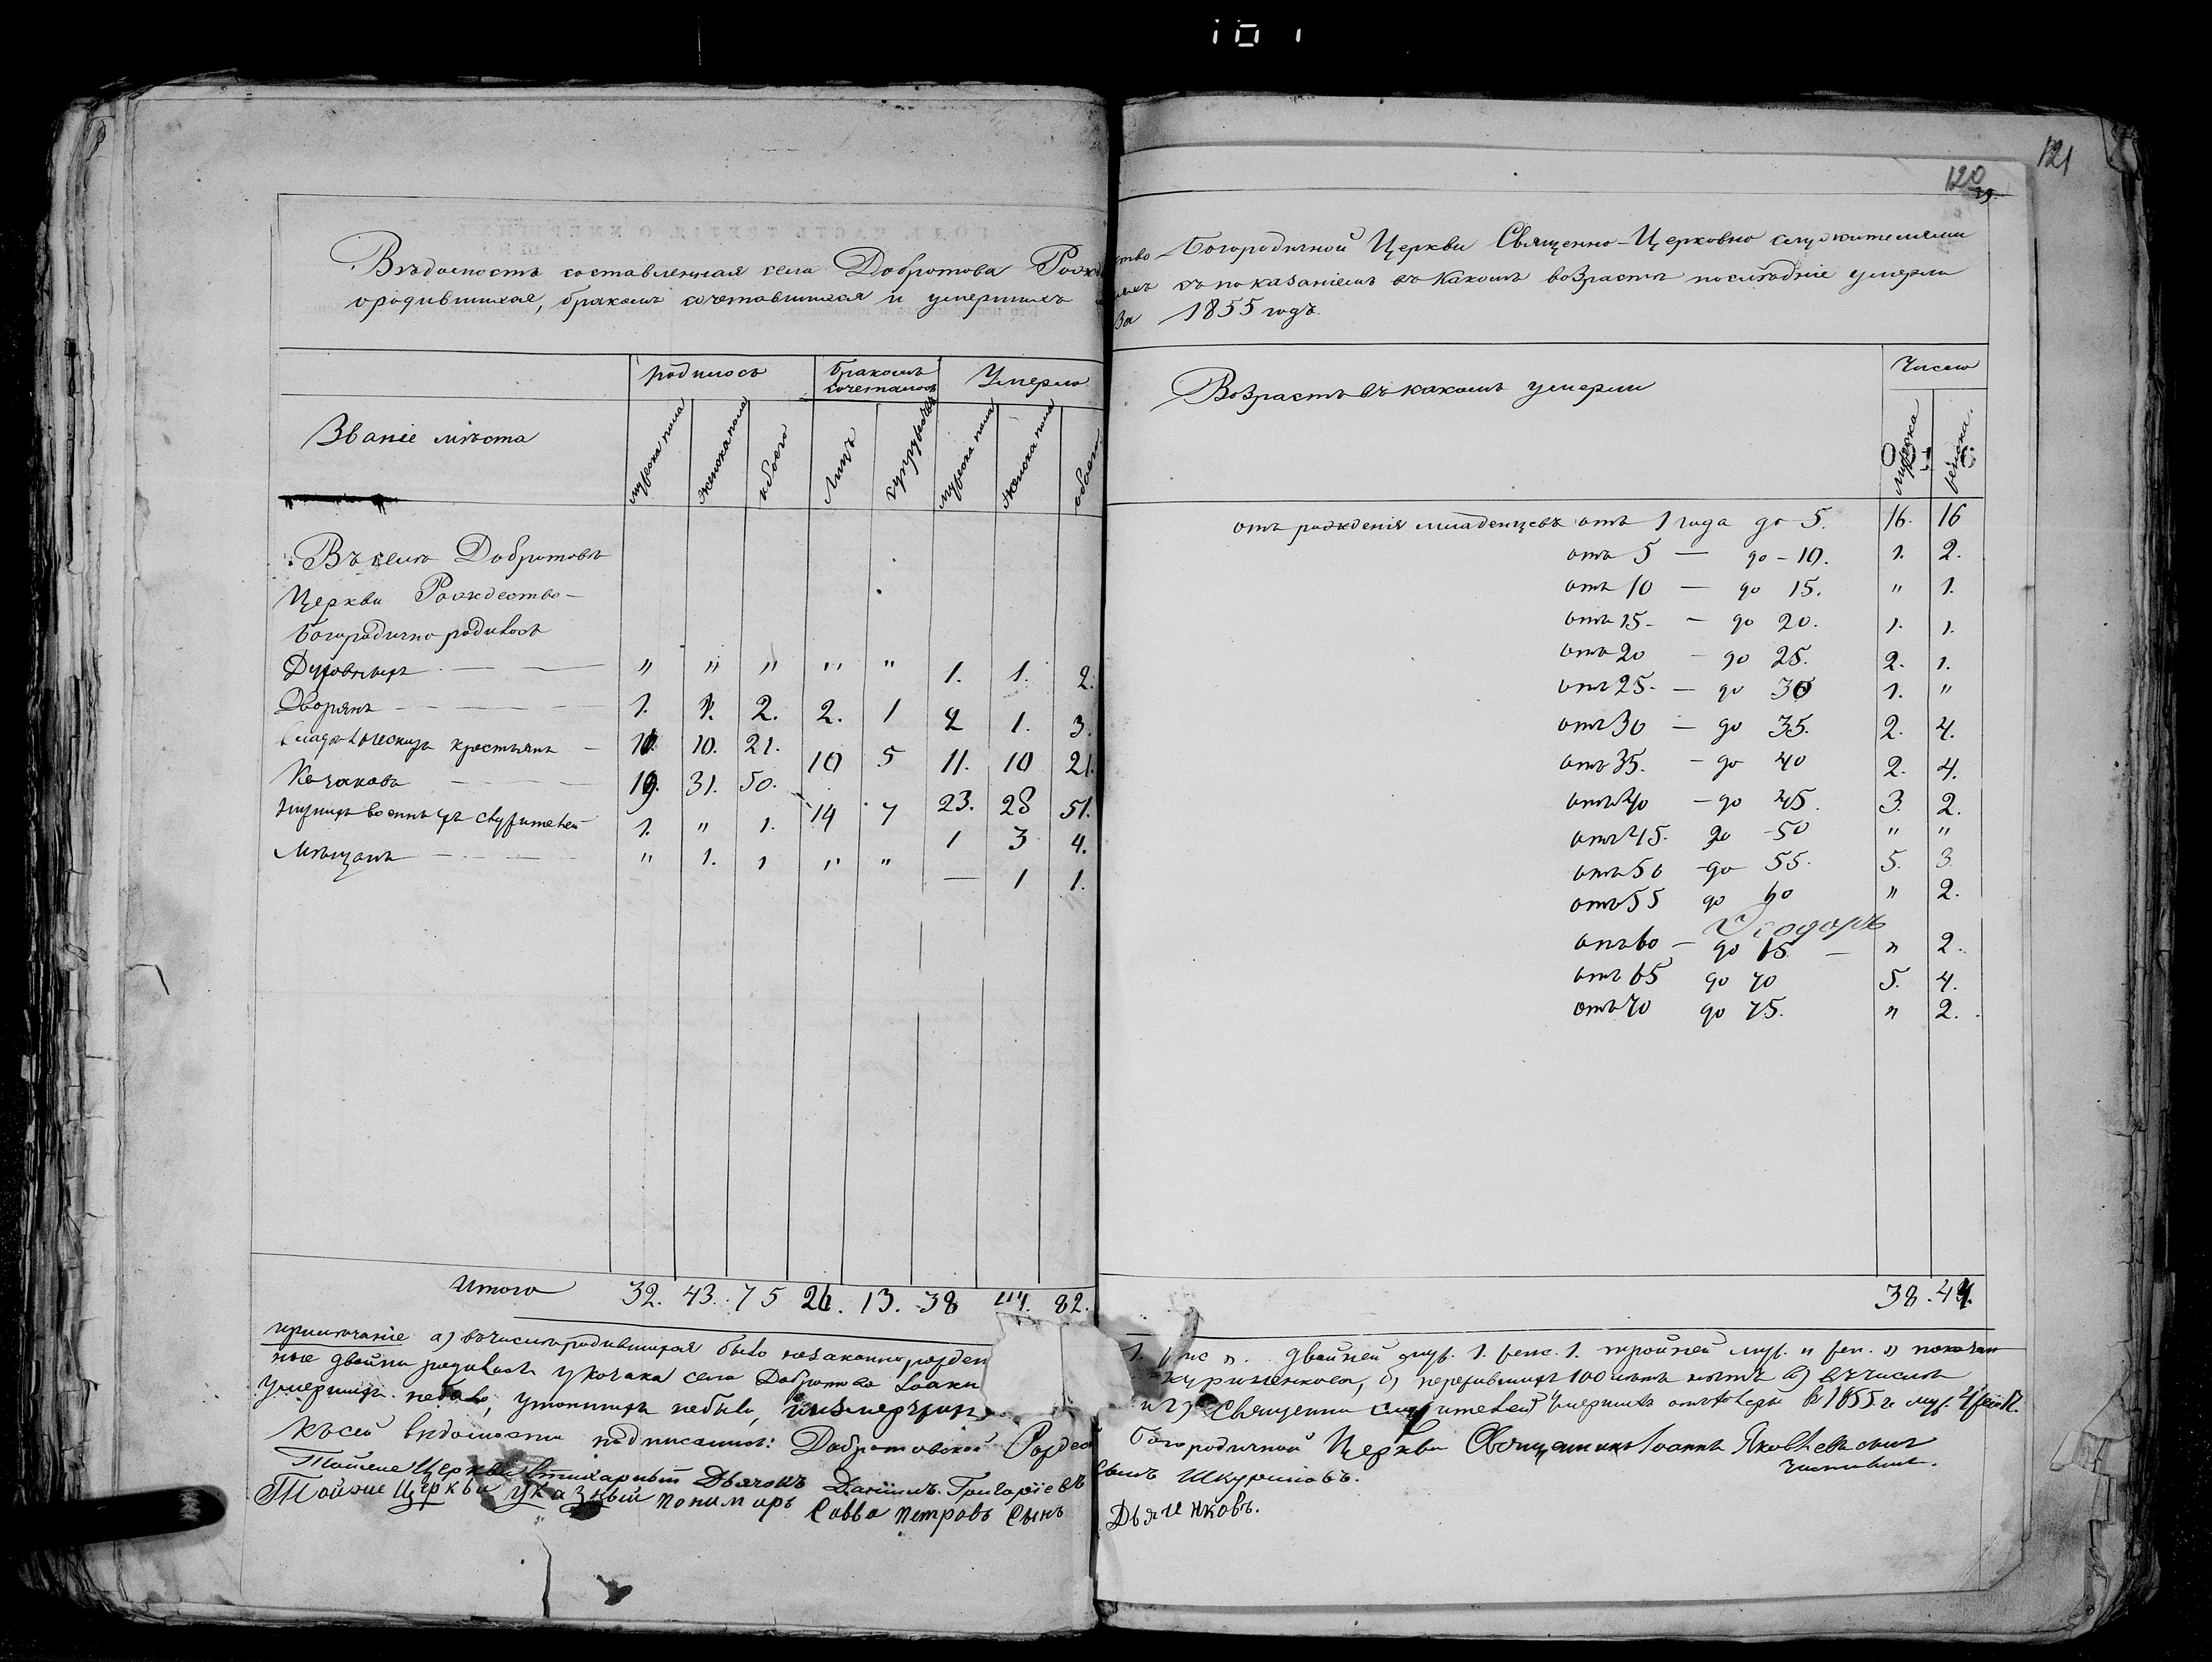 101
121
120
39.
Вѣдомость составленная села Добротова Рожде
ство-Богородичной Церкви Священно-Церковно служителями
о родившихся, бракомъ сочетавшихся и умершихъ
съ показаніемъ въ какомъ возрастѣ послѣдніе умерли
За 1855 годъ.
Званіе мѣста
родилось
бракомъ сочеталось
Умерло
мужеска пола
женска пола
обоего
Лицъ
супружествъ
мужеска пола
женска пола
обоего
Возрастъ въ какомъ умерли
Число
мужска
женска.
Въ селѣ Добротовѣ
Церкви Рождество-
Богородично родилось
Духовныхъ " " " " " 1. 1. 2.
Дворянъ 1. 1. 2. 2. 1 2 1. 3.
крестьянъ 11. 10. 21. 10 5 11. 10 21.
Козаковъ 19. 31. 50. 14 7 23. 28 51.
нижнихъ военныхъ служителей 1. " 1. 1 3 4.
Мѣщанъ " 1. 1 " " — 1 1.
Итого 32. 43. 75 26. 13. 38 44. 82.
отъ рожденія младенцевъ отъ 1 года до 5. 16. 16
отъ 5 — до - 10. 1. 2.
отъ 10 — до 15. " 1.
отъ 15 - до 20. 1. 1.
отъ 20 - до 25. 2. 1.
отъ 25. — до 30 1. "
отъ 30 — до 35. 2. 4.
отъ 35. - до 40 2. 4.
отъ 40 - до 45. 3. 2.
отъ 45. до 50 " "
отъ 50 - до 55. 5. 3
отъ 55 до 60 " 2.
отъ 60 — до 65 — " 2.
отъ 65 до 70 5. 4.
отъ 70 до 75. " 2.
38. 44.
примѣчаніе а) въ числѣ родившихся было незаконнорожден
1. женс ". двойней муж. 1. женс. 1. тройней муж. " жен. " показан
ные двойни родились у козака села Добротова Іоакн
куриненкова, б) пережившихъ 100 лѣтъ нѣтъ в) въ числѣ
умершихъ небыло, утопшихъ небыло,
и г) Священно служителей умершихъ отъ холеры въ 1855. г. муж. 4 жен 12.
Къ сей вѣдомости подписались: Добротовской Рождес
Богородичной Церкви Священникъ Іоаннъ Яковлевъ сынъ
Тойже Церкви Стихарный Дьячокъ Даніилъ Григоріевъ
сынъ Шкуриновъ.
Тойже Церкви указный пономарь Савва Петровъ Сынъ
Дьяченковъ.